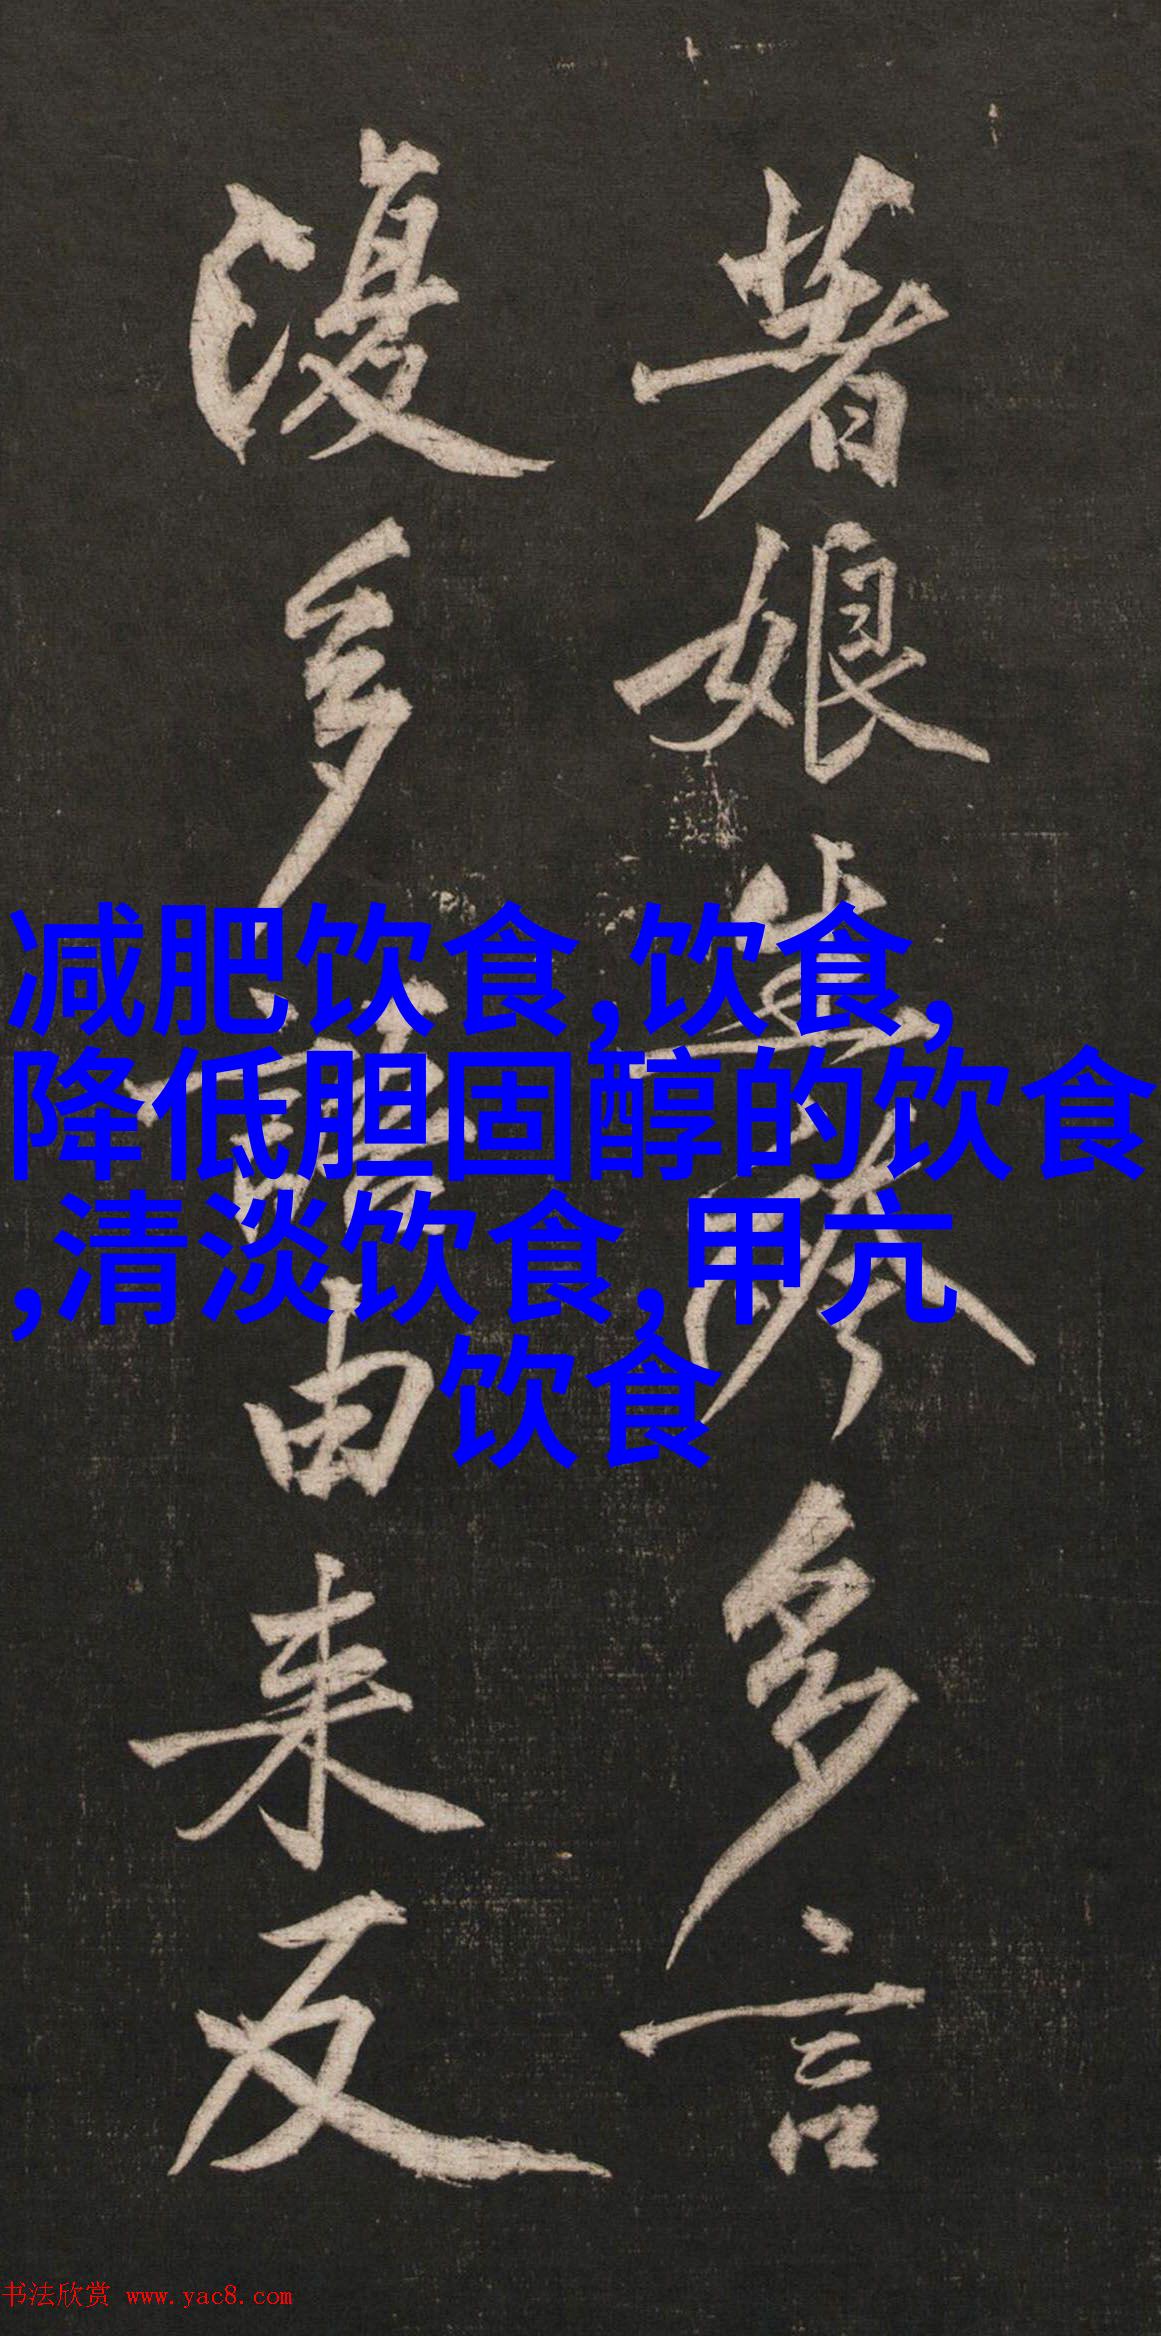 娘多言
多語由来反
减肥饮食,饮食,
降低胆固醇的饮食
,清淡饮食,甲亢
饮食
书法欣赏 www.yac8.com